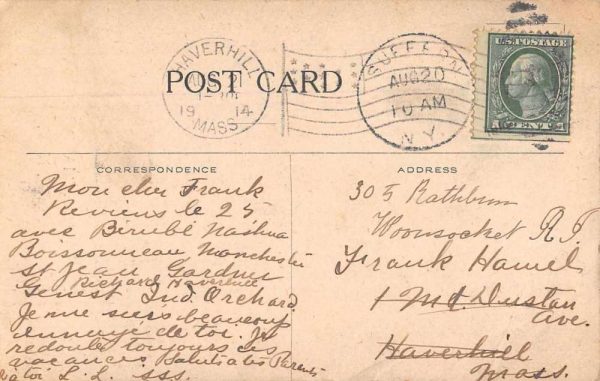 HAVERHILL
1914
MASS
SUFFERN
AUG 20
10 AM
N.Y.
U.S. POSTAGE
POST CARD
CORRESPONDENCE
Mon cher Frank
Reviens le 25
avec Bérubé Nashua
Boissonneau Manchester
St Jean Gardner
Richard Haverhill
Genest Ind. Orchard
Je me suis beaucoup
ennuyé de toi. Je
redoute toujours les
vacances. Salut à tes Parents
à toi L. L. sss.
ADDRESS
305 Rathbun
Woonsocket R.I.
Frank Hamel
1 Mt. Dustan
Ave.
Haverhill
Mass.